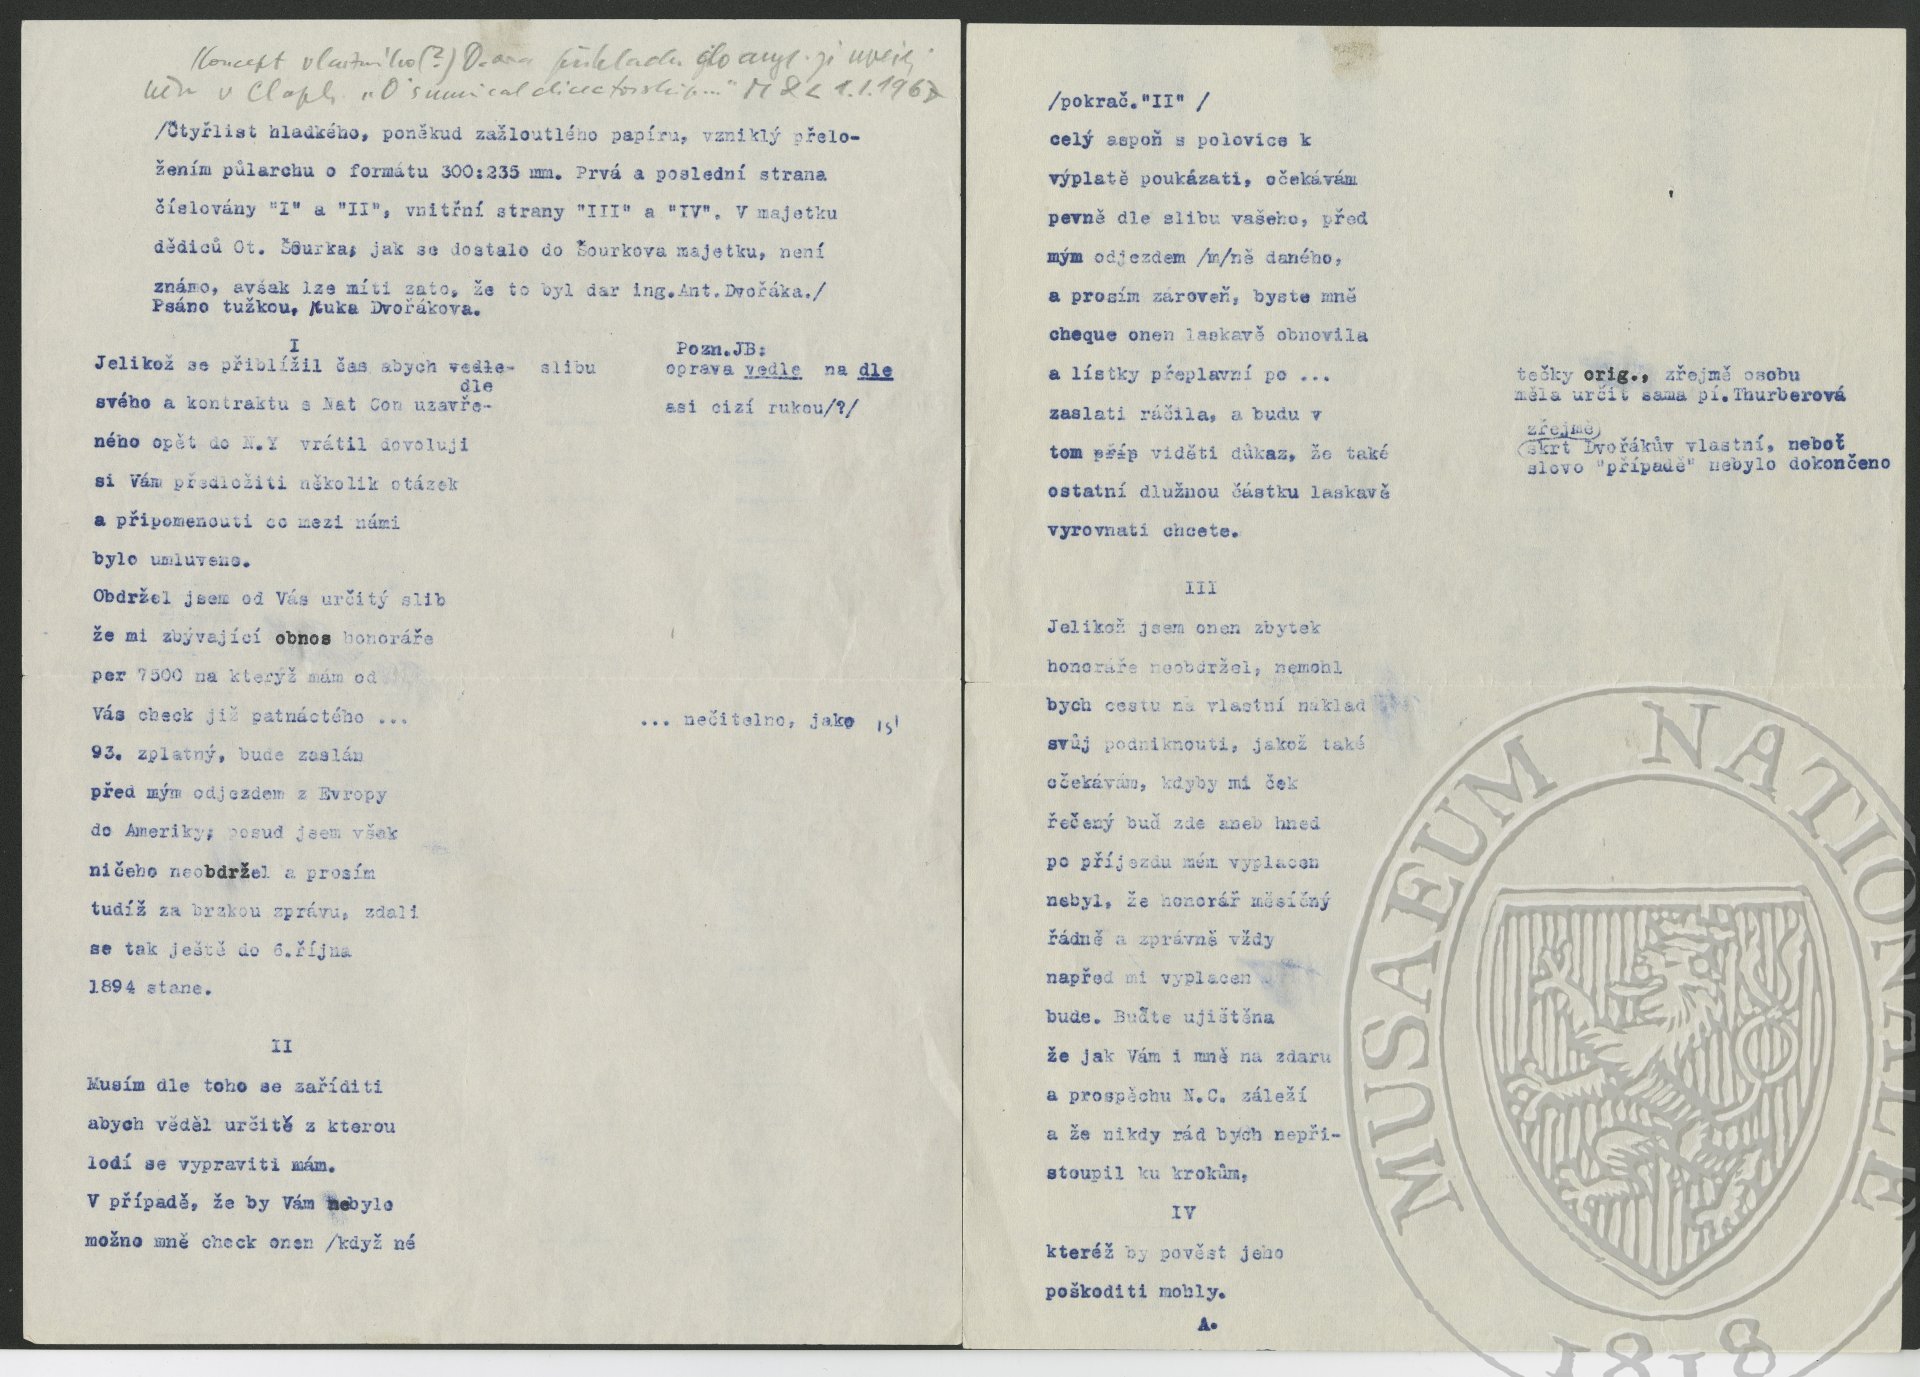 Koncept vlastního(?) D.
v Claph. "D's musical directorship..." 1.1.196
/Čtyřlist hladkého, poněkud zažloutlého papíru, vzniklý přelo-
žením půlarchu o formátu 300:235 mm. Prvá a poslední strana
číslovány "I" a "II", vnitřní strany "III" a "IV". V majetku
dědiců Ot. Šourka; jak se dostalo do Šourkova majetku, není
známo, avšak lze míti zato, že to byl dar ing.Ant.Dvořáka./
Psáno tužkou, ruka Dvořákova.
I
Jelikož se přiblížil čas abych vedle- slibu
dle
svého a kontraktu s Nat Con uzavře-
ného opět do N.Y vrátil dovoluji
si Vám předložiti několik otázek
a připomenouti co mezi námi
bylo umluveno.
Obdržel jsem od Vás určitý slib
že mi zbývající obnos honoráře
per 7500 na kterýž mám od
Vás check již patnáctého ...
93. zplatný, bude zaslán
před mým odjezdem z Evropy
do Ameriky; posud jsem však
ničeho neobdržel a prosím
tudíž za brzkou zprávu, zdali
se tak ještě do 6.října
1894 stane.
Pozn.JB:
oprava vedle na dle
asi cizí rukou/?/
... nečitelno, jako 151
II
Musím dle toho se zaříditi
abych věděl určitě z kterou
lodí se vypraviti mám.
V případě, že by Vám nebylo
možno mně check onen /když né
/pokrač."II" /
celý aspoň s polovice k
výplatě poukázati, očekávám
pevně dle slibu vašeho, před
mým odjezdem /m/ně daného,
a prosím zároveň, byste mně
cheque onen laskavě obnovila
a lístky přeplavní po ...
zaslati ráčila, a budu v
tom příp viděti důkaz, že také
ostatní dlužnou částku laskavě
vyrovnati chcete.
tečky orig., zřejmě osobu
měla určit sama pí.Thurberová
zřejmě
skrt Dvořákův vlastní, neboť
slovo "případě" nebylo dokončeno
III
Jelikož jsem onen zbytek
honoráře neobdržel, nemohl
bych cestu na vlastní náklad
svůj podniknouti, jakož také
očekávám, kdyby mi ček
řečený buď zde aneb hned
po příjezdu mém vyplacen
nebyl, že honorář měsíčný
řádně a zprávně vždy
napřed mi vyplacen
bude. Buďte ujištěna
že jak Vám i mně na zdaru
a prospěchu N.C. záleží
a že nikdy rád bych nepři-
stoupil ku krokům,
IV
kteréž by pověst jeho
poškoditi mohly.
A.
MUSAEUM NATIONALE
1818